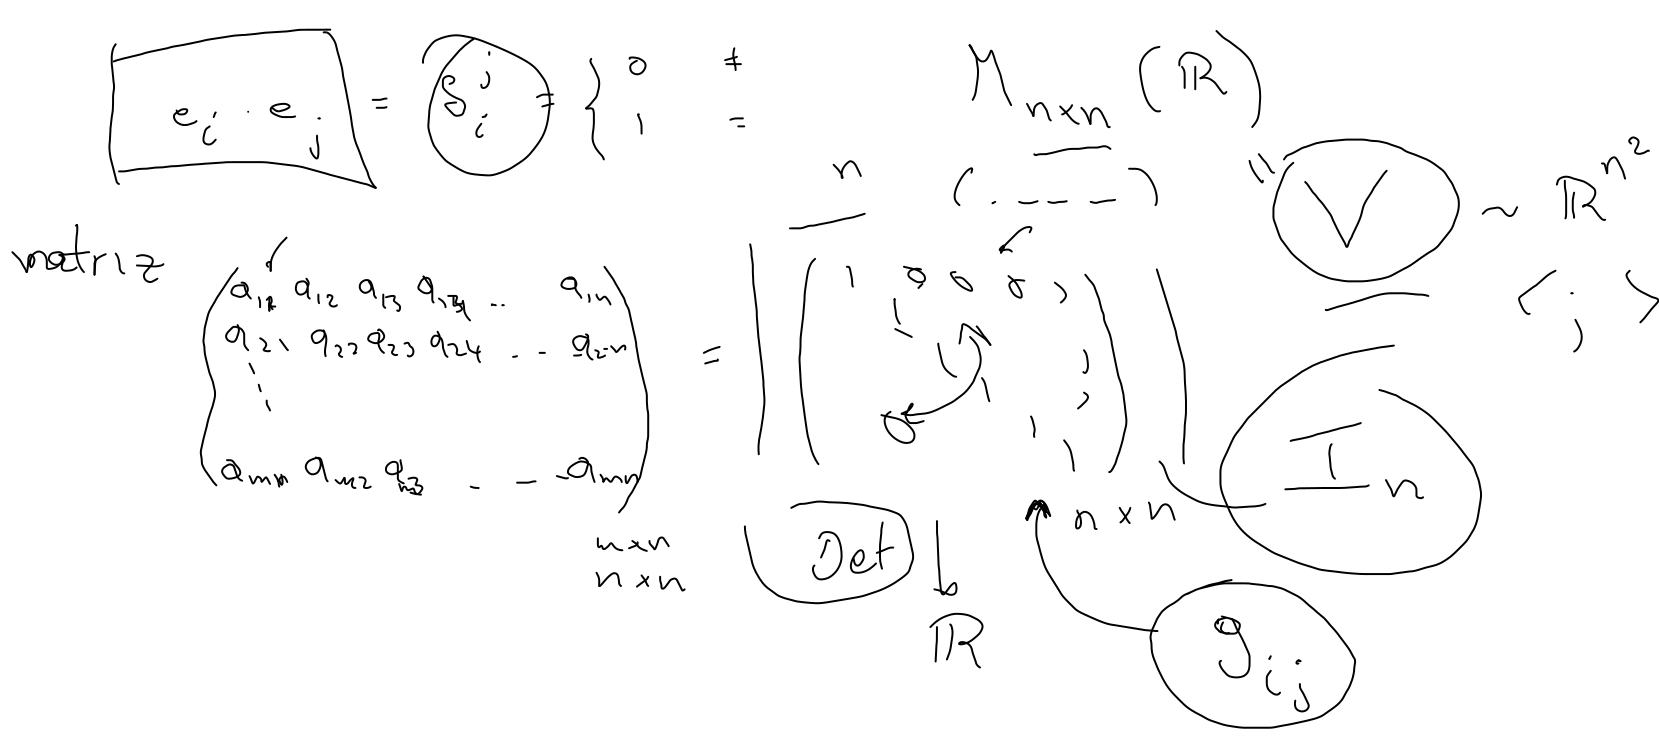 e_i · e_j = δ_i^j = { 0 ≠
1 =
M_{n×n} (ℝ)
n (. _ _ _)
" V ~ ℝ^{n²}
< ; >
matriz
a_{11} a_{12} a_{13} a_{14} .. a_{1n}
a_{21} a_{22} a_{23} a_{24} . . . a_{2n}
a_{mn} a_{m2} . . . a_{mn}
= | ( 1 0 0 0
0
) |
I_n
m×n
n×n
n×n
Det ↓
ℝ
g_{ij}